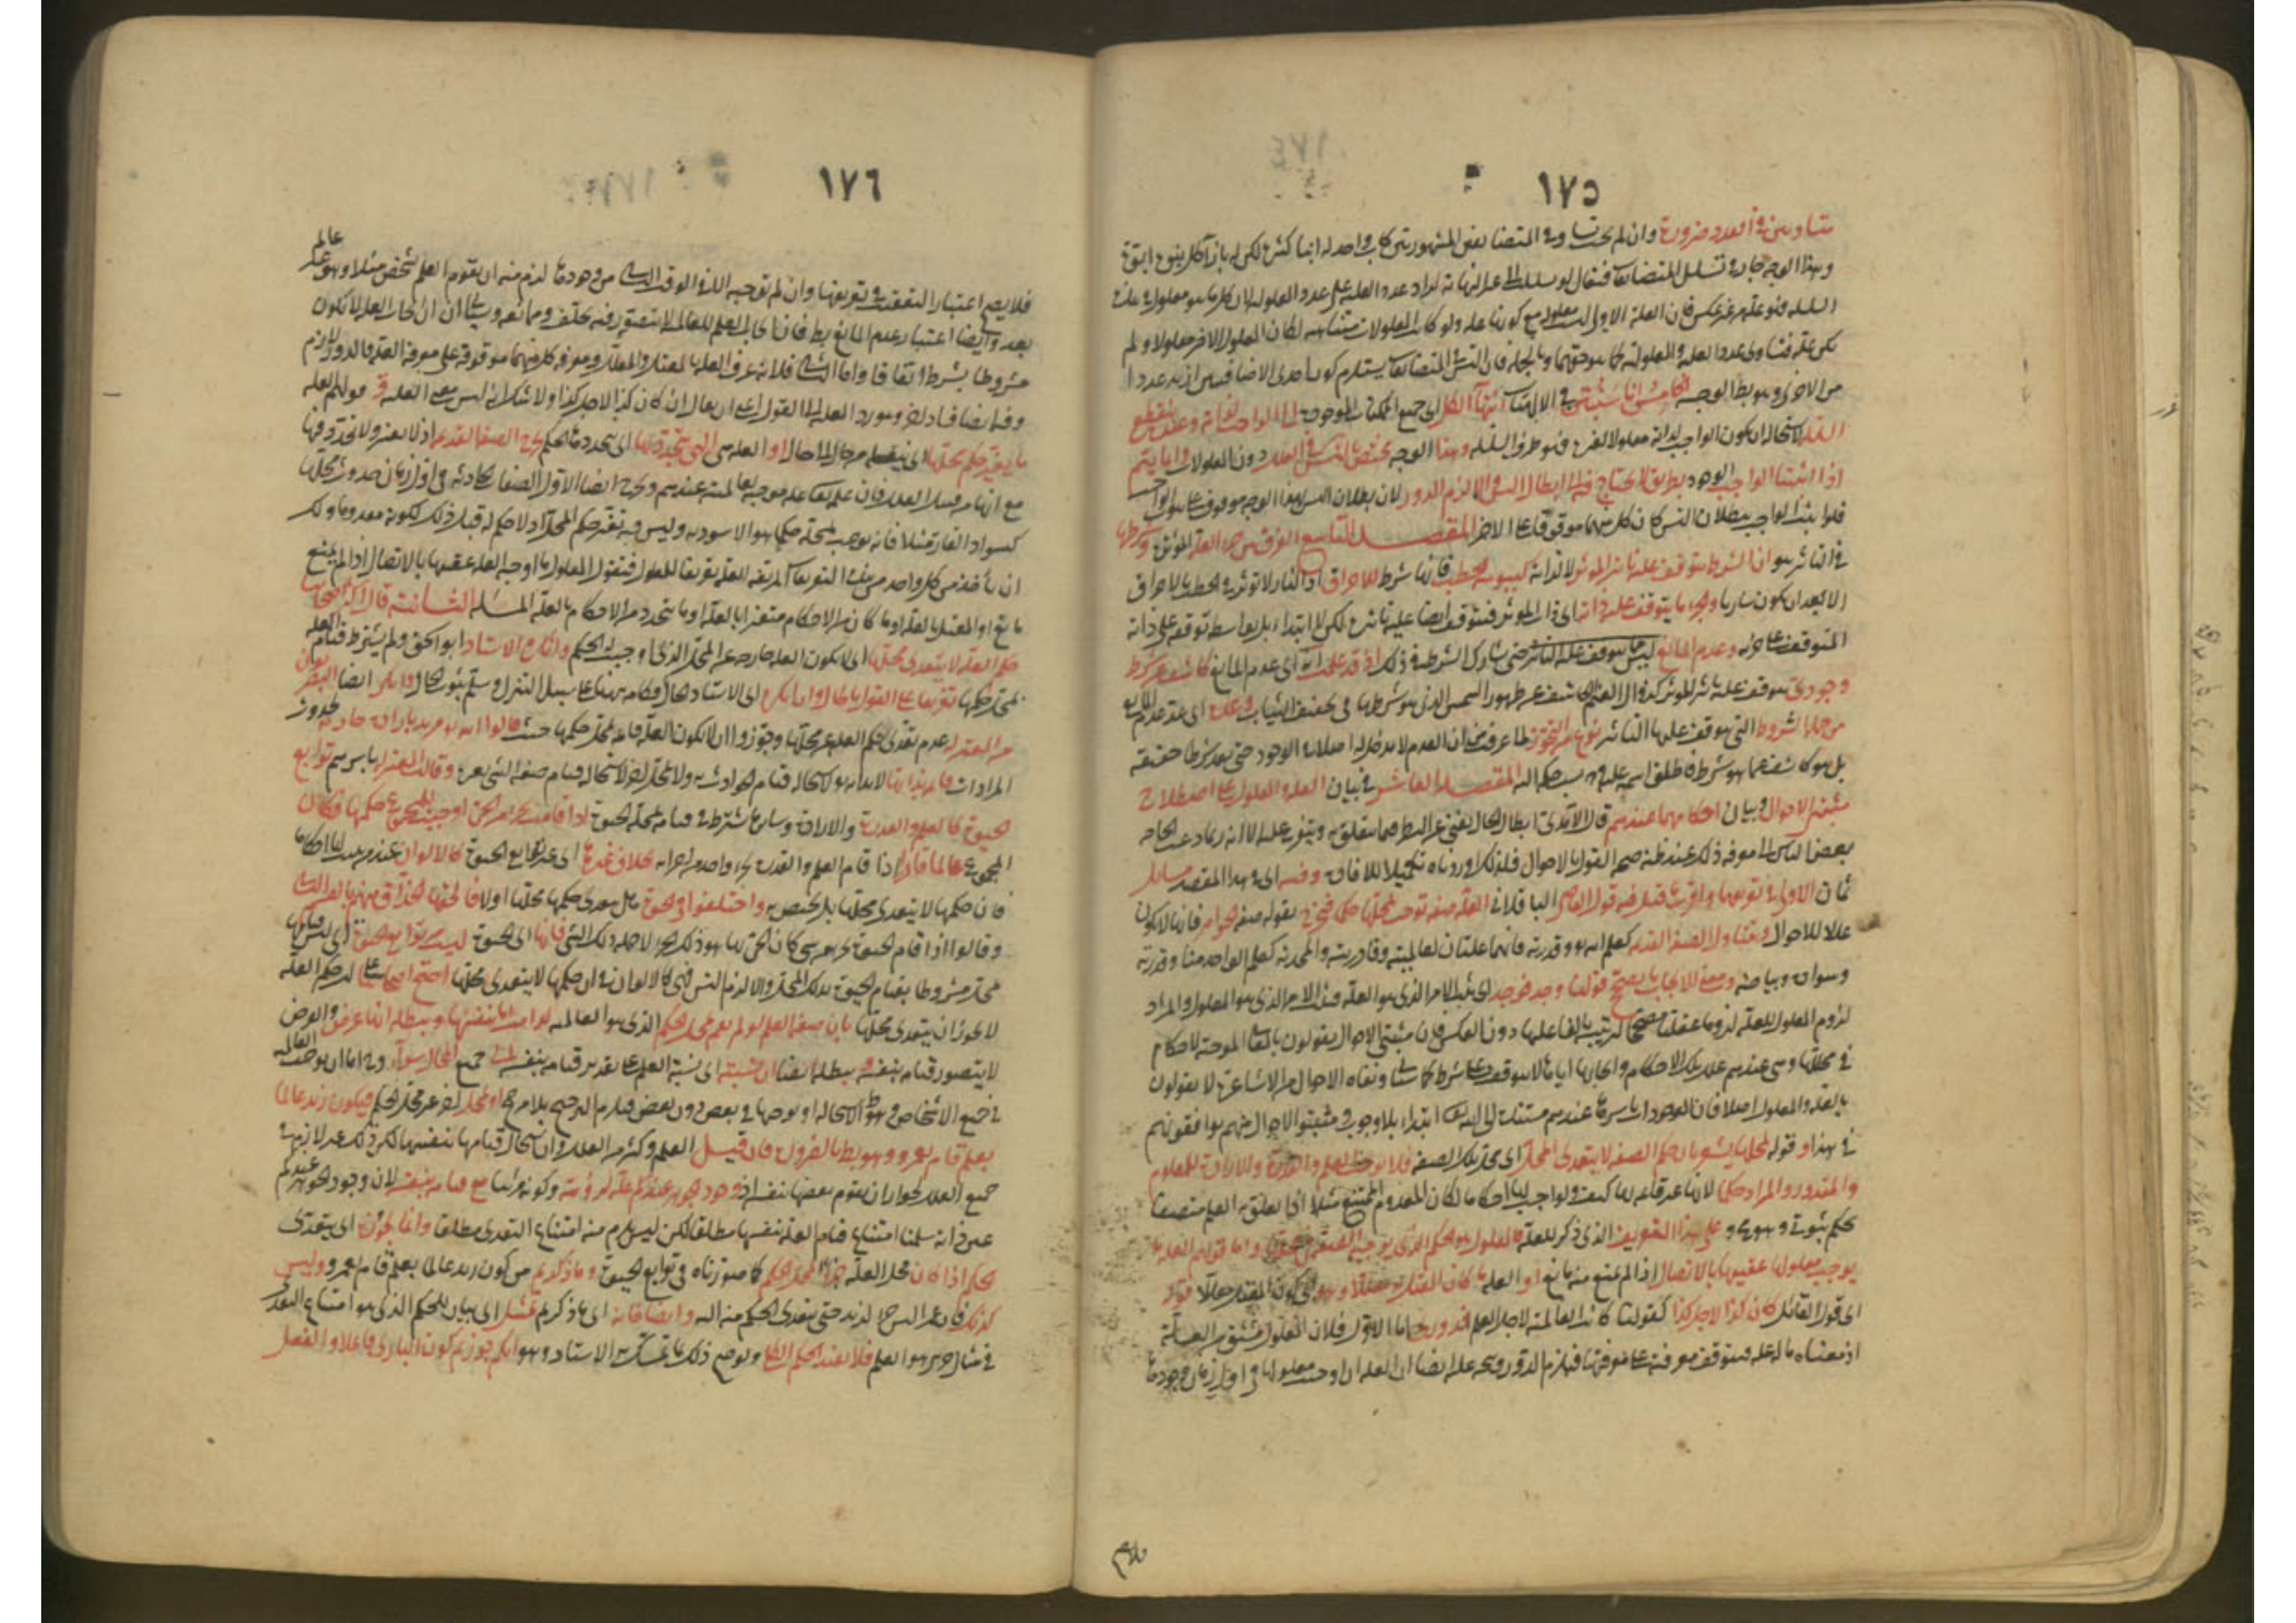 ١٧٥
متساويين في العدد ضرورة وان لم يجب تساوي المتضايفين المشهورين كاب واحد له ابناء كثيرة لكن له بازاء كل بنوة ابوة
وهذا الوجه جار في تسلسل المتضايفات فيقال لو تسلسل العلل الى غير النهاية لزاد عدد العلية على عدد المعلولية لان كل ما هو معلول في
السلسلة فهو علة من غير عكس فان العلة الاولى ليست معلولة مع كونها علة ولو كانت المعلولات متناهية لكان المعلول الاخير معلولا ولم
يكن علة فتساوى عدد العلية والمعلولية كما هو حقهما وبالجملة فان التسلسل في المتضايفات يستلزم كون احدى الاضافتين ازيد عددا
من الاخرى وهو بط الوجه الخامس انا سنبين في الالهيات انتهاء الكل اي جميع الممكنات الموجودة الى الواجب لذاته وعنده ينقطع
السلسلة لاستحالة ان يكون الواجب لذاته معلولا لغيره فهو طرف السلسلة وهذا الوجه يختص بالتسلسل في العلل دون المعلولات وانما يتم
اذا اثبتنا الواجب الوجود بطريق لا يحتاج فيه الى ابطال التسلسل والا لزم الدور لان بطلان التسلسل بهذا الوجه موقوف على ثبوت الواجب
فلو اثبت الواجب ببطلان التسلسل كان كل منهما موقوفا على الاخر المقصد التاسع الفرق بين جزء العلة المؤثرة وشرطها
في التاثير هو ان الشرط يتوقف عليه تاثير المؤثر لا ذاته كيبوسة الحطب فانها شرط للاحراق اذ النار لا تؤثر في الحطب بالاحراق
الا بعد ان يكون يابسا والجزء ما يتوقف عليه ذاته اي ذات المؤثر فيتوقف ايضا عليه تاثيره لكن لا ابتداء بل بواسطة توقفه على ذاته
المتوقفة على جزئه وعدم المانع ليس مما يتوقف عليه التاثير حتى يشارك الشرط في ذلك اذ قد علمت انه اي عدم المانع كاشف عن شرط
وجودي يتوقف عليه تاثير المؤثر كزوال الغيم الكاشف عن ظهور الشمس الذي هو شرطها في تجفيف الثياب وعده اي عد عدم المانع
من جملة الشروط التي يتوقف عليها التاثير نوع من التجوز لما عرفت من ان العدم لا مدخل له اصلا في الوجود حتى يعد شرطا حقيقة
بل هو كاشف عما هو شرط فاطلق اسمه عليه ونسب حكمه اليه المقصد العاشر في بيان العلة والمعلول على اصطلاح
مثبتي الاحوال وبيان احكامهما عندهم قال الآمدي ابطال الحال يغني عن النظر فيما يتعلق به ويتفرع عليه الا انه ربما دعت الحاجة
بعض الناس الى معرفة ذلك عند ظنه صحة القول بالاحوال فلذلك اوردناه تكميلا للافادة وفيه اي في هذا المقصد مسائل
ثمان الاولى في تعريفهما واقرب ما قيل فيه قول القاضي الباقلاني العلة صفة توجب لمحلها حكما فيخرج بقوله صفة الجواهر فانها لا تكون
عللا للاحوال ويتناول الصفة القديمة كعلم الله وقدرته فانهما علتان لعالميته وقادريته والمحدثة كعلم الواحد منا وقدرته
وسواده وبياضه ومعنى الايجاب ما يصحح قولنا وجد فوجد اي ثبت الامر الذي هو العلة فثبت الامر الذي هو المعلول والمراد
لزوم المعلول للعلة لزوما عقليا مصححا لترتبه بالفاء عليها دون العكس فان مثبتي الاحوال يقولون بالمعاني الموجبة لاحكام
في محالها وهي عندهم علل تلك الاحكام وايجابها اياها لا يتوقف على شرط كما سياتي ونفاة الاحوال من الاشاعرة لا يقولون
بالعلة والمعلول اصلا فان الموجودات باسرها عندهم مستندة الى الله تعالى ابتداء بلا وجوب ومثبتو الاحوال منهم يوافقونهم
في هذا وقوله لمحلها يشعر بان حكم الصفة لا يتعدى المحل اي محل تلك الصفة فلا يوجب العلم والقدرة والارادة للمعلوم
والمقدور والمراد حكما لانها غير قائمة بها كيف ولو اوجبت لها احكاما لكان المعدوم الممتنع مثلا اذا تعلق به العلم متصفا
بحكم ثبوتي وهو مح وعلى هذا التعريف الذي ذكر للعلة فالمعلول هو الحكم الذي يوجبه الصفة في محلها واما قولهم العلة ما
يوجب معلولها عقيبها بالاتصال اذا لم يمنع منه مانع او العلة ما كان المعتل به معللا وهو اي كون المعتل به معللا قوله
اي قول القائل كان كذا لاجل كذا كقولنا كانت العالمية لاجل العلم فدوري اما الاول فلان المعلول مشتق من العلة
اذ معناه ما له علة فيتوقف معرفته على معرفتها فيلزم الدور ويتجه عليه ايضا ان العلة ان اوجبت معلولها في اول زمان وجودها
١٧٦
فلا يصح اعتبار التعقب في تعريفها وان لم توجبه الا في الوقت الثاني من وجودها لزم منه ان يقوم العلم بشخص مثلا وهو غير عالم
بعد وايضا اعتبار عدم المانع بط فان ايجاب العلم للعالمية لا يتصور فيه تخلف وممانعة وسياتي ان ايجاب العلة لا يكون
مشروطا بشرط اتفاقا واما الثاني فلانه عرف العلة بالمعتل والمعلل ومعرفة كل منهما موقوفة على معرفة العلة فالدور لازم
وفيه ايضا فساد اخر وهو رد العلة الى القول اعني ان يقال انه كان كذا لاجل كذا ولا شك انه ليس معنى العلة وقولهم العلة
ما يغير حكم محلها اي ينقله من حال الى حال او العلة هي التي يتجدد بها اي بتجددها الحكم يخرج الصفة القديمة اذ لا تغير ولا تجدد فيها
مع انها من قبيل العلل فان علم الله تعالى علة موجبة لعالميته عندهم ويخرج ايضا الاول الصفات الحادثة في اول زمان حدوث محلها
كسواد القار مثلا فانه يوجب لمحله حكما هو الاسودية وليس فيه تغير حكم المحل اذ لا حكم له قبل ذلك لكونه معدوما ولك
ان تاخذ من كل واحد من هذه التعريفات المزيفة للعلة تعريفا للمعلول فتقول المعلول ما اوجبه العلة عقيبها بالاتصال اذا لم يمنع
مانع او المعتل بالعلة او ما كان من الاحكام متغيرا بالعلة او ما يتجدد من الاحكام بالعلة المسئلة الثانية قال اكثر اصحابنا
حكم العلة لا يتعدى محلها اي لا تكون العلة خارجة عن المحل الذي اوجبت له الحكم وانكره الاستاذ ابو اسحق ولم يشترط قيام العلة
بمحل حكمها تفريعا على القول بالحال وانما انكره اي الاستاذ الحال وكلامه ههنا على سبيل التنزل وتسليم ثبوت الحال وانكر ايضا البصريون
من المعتزلة عدم تعدي حكم العلة عن محلها وجوزوا ان لا تكون العلة قائمة بمحل حكمها حيث قالوا الله تعالى مريد بارادة حادثة لحدوث
المرادات قائمة بذاتها لا بذاته تعالى لاستحالة قيام الحوادث به ولا بمحل اخر لاستحالة قيام صفة الشئ بغيره وقالت المعتزلة باسرهم توابع
الحيوة كالعلم والقدرة والارادة وسائر ما يشترط في قيامه بمحله الحيوة اذا قامت بجزء من الحي اوجبت للمجموع حكمها فكان
المجموع عالما قادرا اذا قام العلم والقدرة بجزء واحد من اجزائه بخلاف غيرها اي غير توابع الحيوة كالالوان عند من يثبت لها احكاما
فان حكمها لا يتعدى محلها بل يختص به واختلفوا في الحيوة هل يتعدى حكمها محلها اولا فالحقها الحذاق منهم بالقسم الثاني
وقالوا اذا قام الحيوة بجزء من شئ كان الحي بها هو ذلك الجزء لا جملة ذلك الشئ فانها اي الحيوة ليست من توابع الحيوة اي ليس قيامها
بمحل مشروطا بقيام الحيوة بذلك المحل والا لزم التسلسل فهي كالالوان في ان حكمها لا يتعدى محلها احتج اصحابنا على ان حكم العلة
لا يجوز ان يتعدى محلها بان صفة العلم لو لم تعم محل الحكم الذي هو العالمية لقامت بنفسها ويبطله انها عرض والعرض
لا يتصور قيامه بنفسه ويبطله ايضا ان نسبته اي نسبة العلم على تقدير قيامه بنفسه الى جميع المحال سواء وح اما ان يوجب العالمية
في جميع الاشخاص وهو ظ الاستحالة او يوجبها في بعض دون بعض فيلزم الترجيح بلا مرجح او بمحل اخر غير محل الحكم فيكون زيد عالما
بعلم قام بعمرو وهو بط بالضرورة فان قيل العلم وكثير من العلل وان استحال قيامها بانفسها لكن ذلك غير لازم في
جميع العلل لجواز ان يقوم بعضها بنفسه اذ وجود الجوهر عندكم علة لرؤيته وكونه مرئيا مع قيامه بنفسه لان وجود الجوهر عندكم
عين ذاته سلمنا امتناع قيام العلة بنفسها مطلقا لكن ليس يلزم منه امتناع التعدي مطلقا وانما يجوز اي يتعدى
الحكم اذا كان محل العلة جزءا لمحل الحكم كما صورناه في توابع الحيوة وما ذكرتم من كون زيد عالما بعلم قام بعمرو وليس
كذلك فان عمرا ليس جزءا لزيد حتى يتعدى الحكم منه اليه وايضا فانه اي ما ذكرتم تمثيل اي بيان للحكم الذي هو امتناع التعدي
في مثال جزئي هو العلم فلا يفيد الحكم الكلي ويوضح ذلك ما تمسك به الاستاذ وهو انكم جوزتم كون الباري فاعلا والفعل